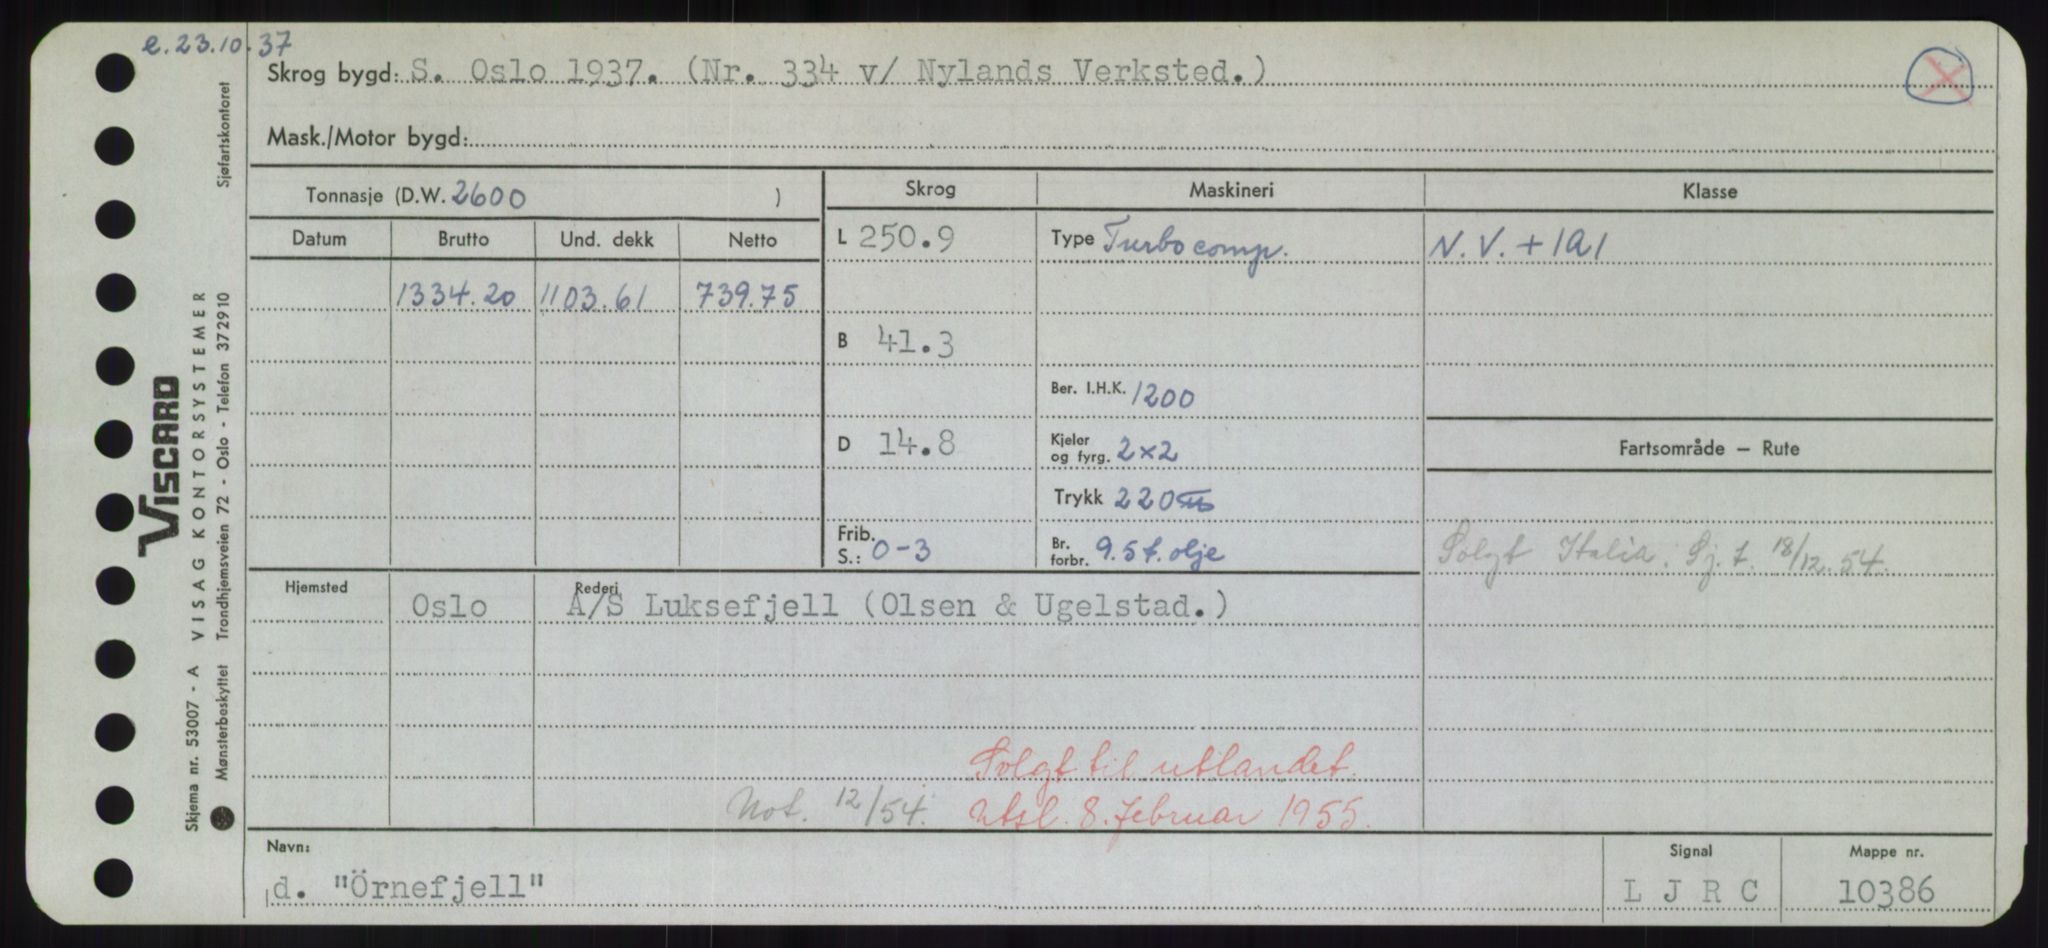 e. 23.10.37
Skrog bygd: S. Oslo 1937. (Nr. 334 v/ Nylands Verksted.)
Mask./Motor bygd:
Tonnasje (D.W. 2600 )
Datum Brutto Und. dekk Netto
1334.20 1103.61 739.75
Skrog
L 250.9
B 41.3
D 14.8
Frib.
S.: 0-3
Maskineri
Type Turbocomp.
Ber. I.H.K. 1200
Kjeler
og fyrg. 2×2
Trykk 220 lb
Br.
forbr. 9.5 t. olje
Klasse
N.V. + 1A1
Fartsområde – Rute
Solgt Italia. Sj. t. 18/12.54.
Hjemsted Oslo
Rederi
A/S Luksefjell (Olsen & Ugelstad.)
Solgt til utlandet.
Not. 12/54. Utsl. 8. februar 1955.
Navn:
d. "Örnefjell"
Signal
L J R C
Mappe nr.
10386
VISCARD
Skjema nr. 53007 - A VISAG KONTORSYSTEMER
Mønsterbeskyttet Trondhjemsveien 72 - Oslo - Telefon 372910 Sjøfartskontoret